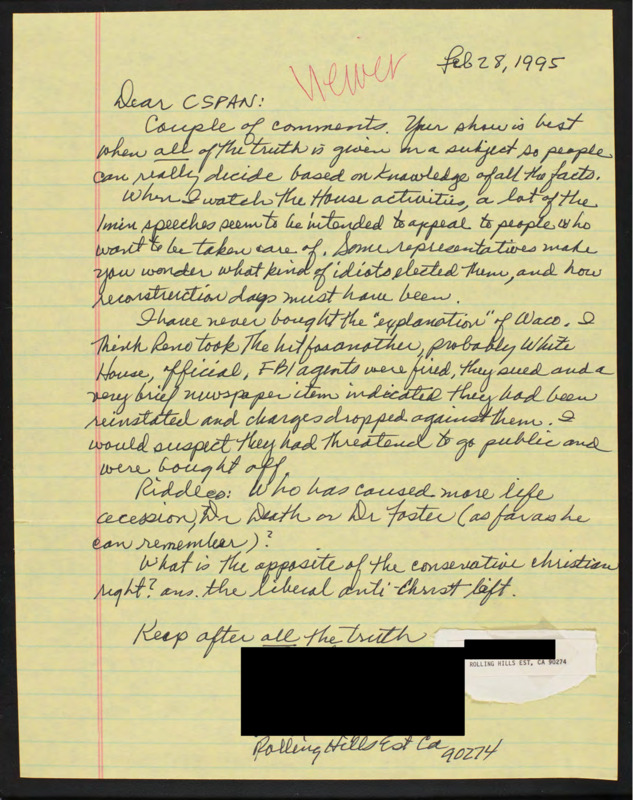 Feb 28, 1995
Viewer
Dear CSPAN:
Couple of comments. Your show is best
when all of the truth is given on a subject so people
can really decide based on knowledge of all the facts.
When I watch the House activities, a lot of the
1min speeches seem to be intended to appeal to people who
want to be taken care of. Some representatives make
you wonder what kind of idiots elected them, and how
reconstruction days must have been.
I have never bought the "explanation" of Waco. I
think Reno took the hit for another, probably White
House, official, FBI agents were fired, they sued and a
very brief newspaper item indicated they had been
reinstated and charges dropped against them. I
would suspect they had threatend to go public and
were bought off
Riddles: Who has caused more life
cecession, Dr Death or Dr Foster (as far as he
can remember)?
What is the opposite of the conservative christian
right? ans. the liberal anti-Christ left.
Keep after all the truth
ROLLING HILLS EST, CA 90274
Rolling Hills Est Ca
90274